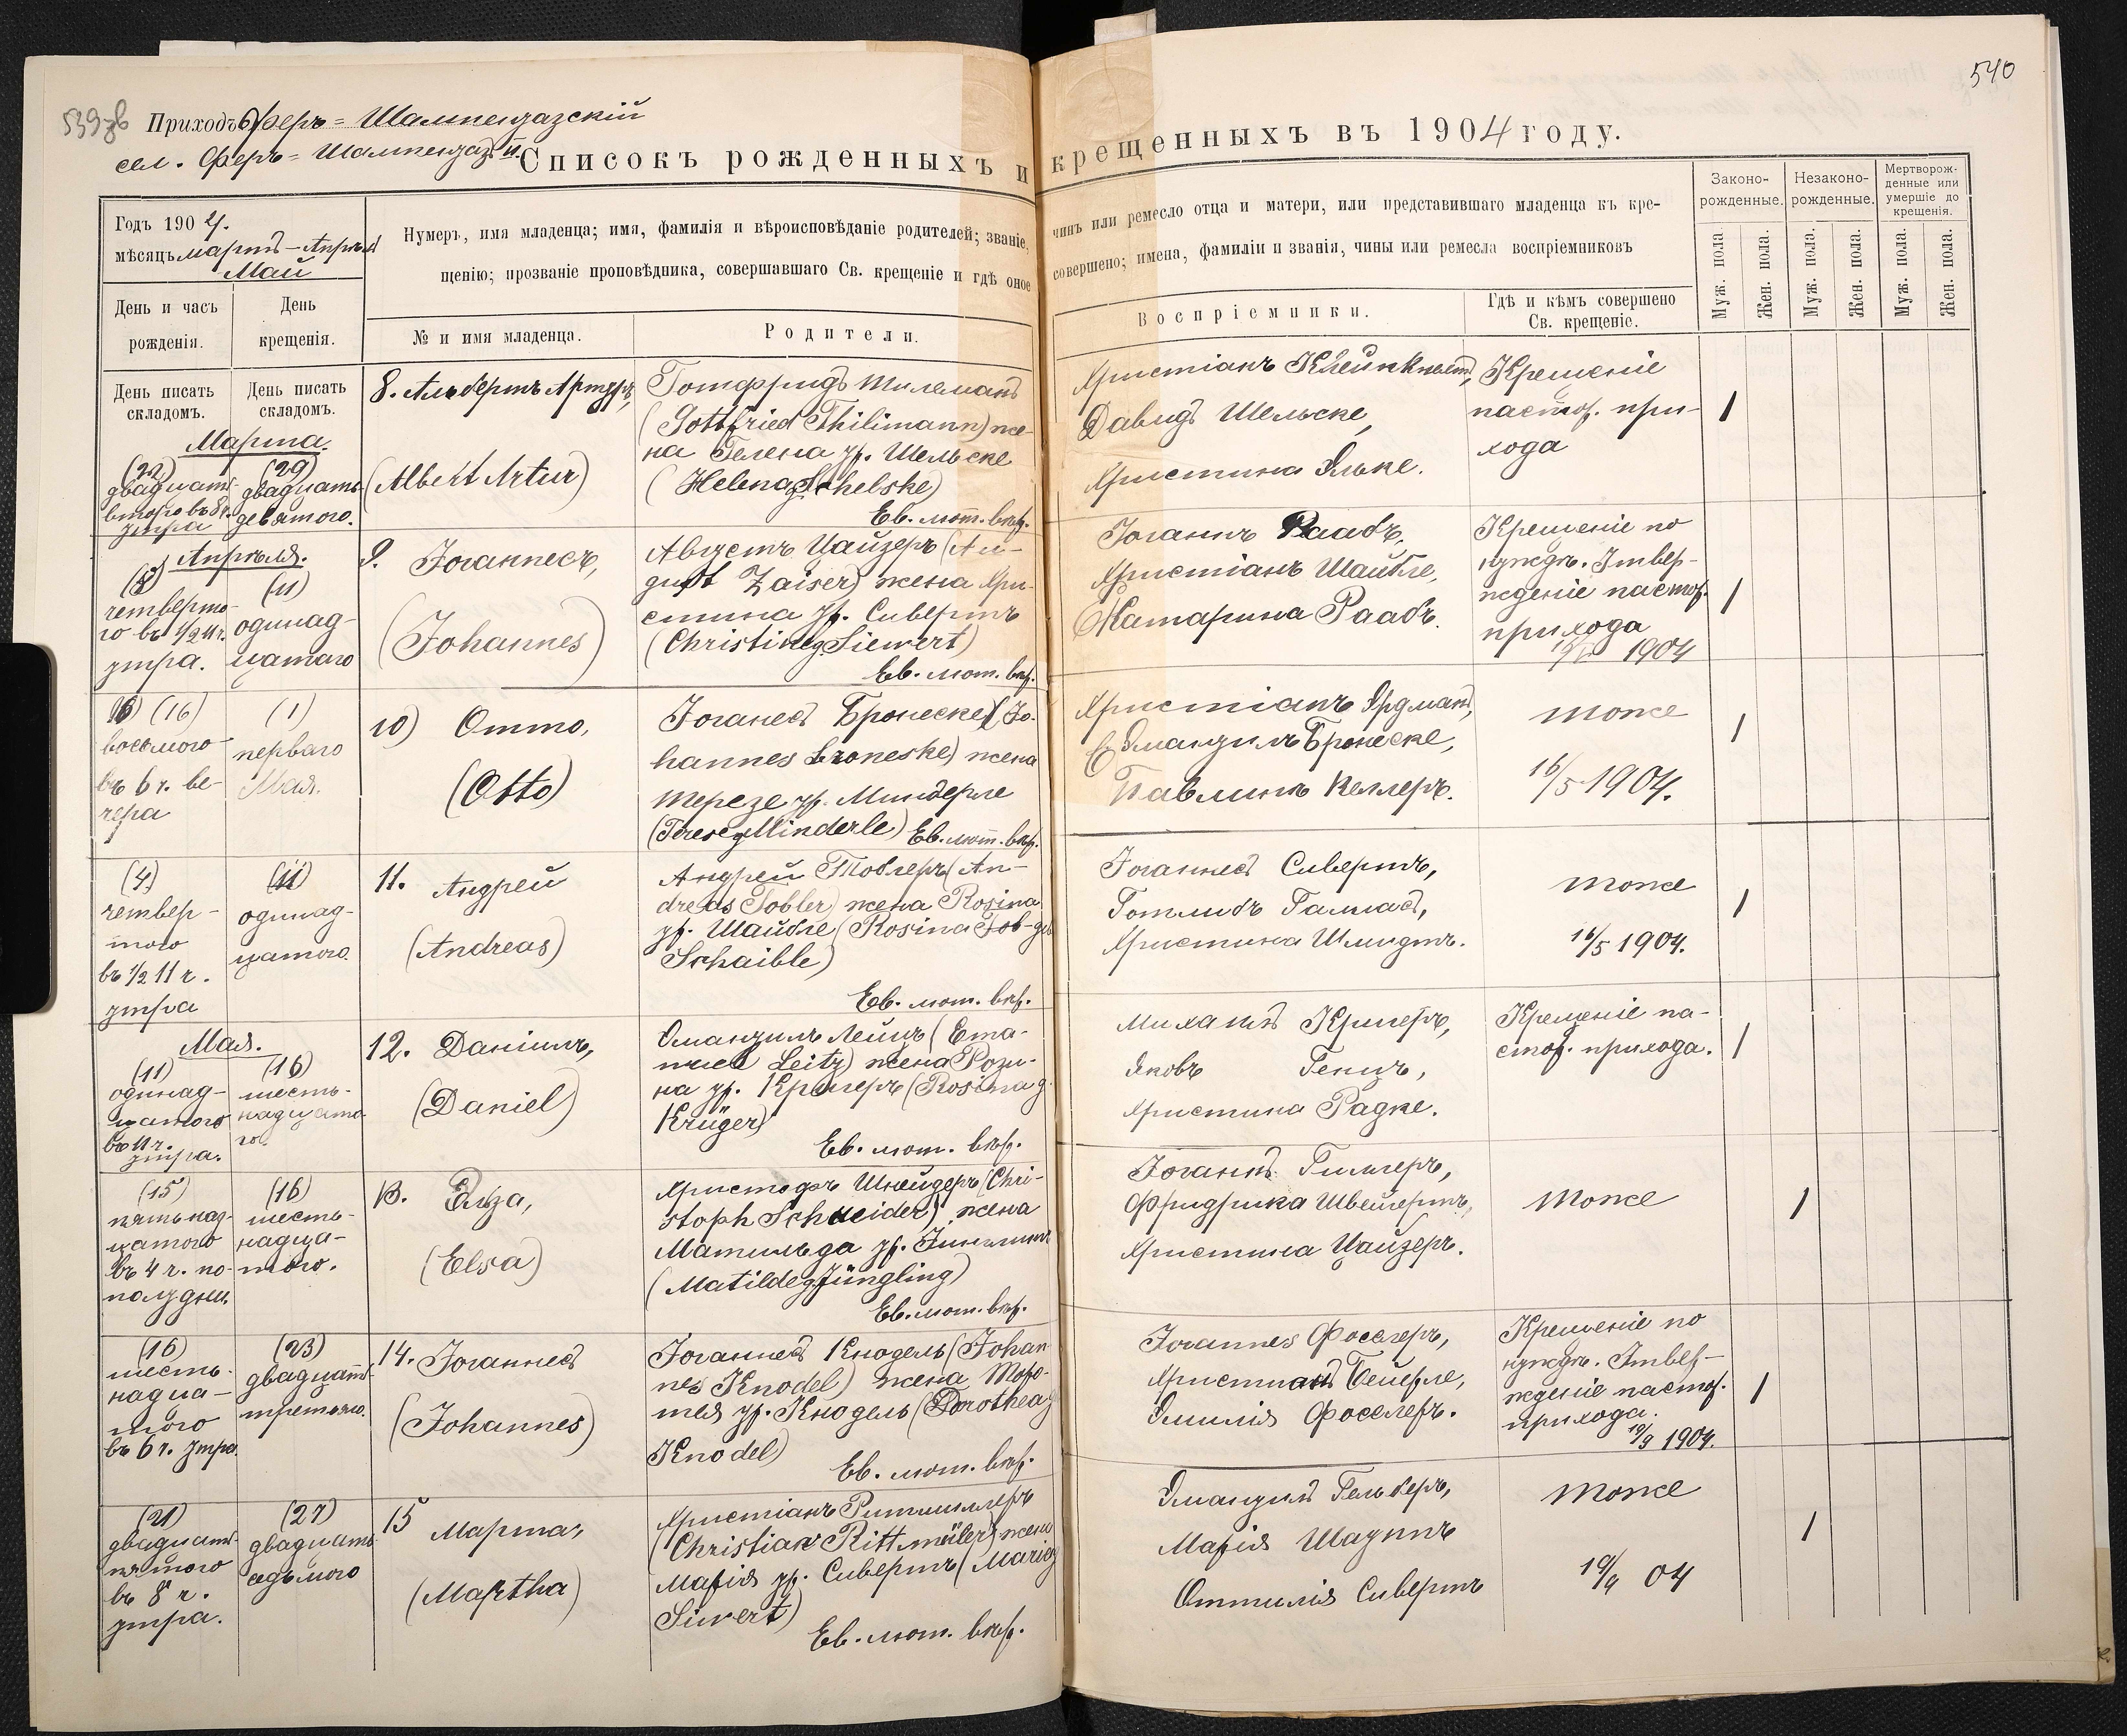 539зв
540
Приходъ Феръ=Шампенуазскій
сел. Феръ=Шампенуазъ II.
Списокъ рожденныхъ и крещенныхъ въ 1904 году.
Годъ 1904.
мѣсяцъ мартъ-Апрѣль
Май
Нумеръ, имя младенца; имя, фамилія и вѣроисповѣданіе родителей; званіе, чинъ или ремесло отца и матери, или представившаго младенца къ кре-
щенію; прозваніе проповѣдника, совершавшаго Св. крещеніе и гдѣ оное совершено; имена, фамиліи и званія, чины или ремесла воспріемниковъ
Законо-
рожденные.
Незаконо-
рожденные.
Мертворож-
денные или
умершіе до
крещенія.
День и часъ
рожденія.
День
крещенія.
№ и имя младенца.
Родители.
Воспріемники.
Гдѣ и кѣмъ совершено
Св. крещеніе.
Муж. пола.
Жен. пола.
Муж. пола.
Жен. пола.
Муж. пола.
Жен. пола.
День писать
складомъ.
День писать
складомъ.
Марта.
(22)
двадцать
втораго въ 8 ч.
утра
(29)
двадцать
девятого.
8. Альбертъ Артуръ,
(Albert Artur)
Готфридъ Тилеманъ
(Gottfried Thilimann) же-
на Гелена ур. Шельске
(Helena g. Schelske)
Ев. лют. вѣр.
Христіанъ Клейнкнехтъ,
Давидъ Шельске,
Христина Яльке.
Крещеніе
пастор. при-
хода
1
Апрѣля.
четверто-
го въ 1/2 11 ч.
утра.
(11)
одинад-
цатаго
9. Іоганнесъ,
(Johannes)
Августъ Цайзеръ (Au-
gust Zaiser) жена Хри-
стина ур. Сивертъ
(Christine g. Siewert)
Ев. лют. вѣр.
Іоганнъ Раабъ,
Христіанъ Шайбле,
Катарина Раабъ.
Крещеніе по
нуждѣ. Утвер-
жденіе пастор.
прихода
1904
1
(16)
восьмого
въ 6 ч. ве-
чера
(1)
перваго
Мая.
10) Отто,
(Otto)
Іоганесъ Бронеске (Jo-
hannes Broneske) жена
Терезе ур. Миндерле
(Terese g. Minderle) Ев. лют. вѣр.
Христіанъ Эрдманъ,
Эмануилъ Бронеске,
Павлина Келлеръ.
тоже
16/5 1904.
1
(4)
четвер-
того
въ 1/2 11 ч.
утра
(11)
одинад-
цатого.
11. Андрей
(Andreas)
Андрей Тоблеръ (An-
dreas Tobler) жена Rosina
ур. Шайбле (Rosina Tob- geb
Schaible)
Ев. лют. вѣр.
Іоганнесъ Сивертъ,
Готлибъ Галласъ,
Христина Шмидтъ.
тоже
16/5 1904.
1
Мая.
(11)
одинад-
цатого
въ 11 ч.
утра.
(16)
шесть-
надцато-
го.
12. Даніилъ,
(Daniel)
Эмануилъ Лейцъ (Ema-
nuel Leitz) жена Рози-
на ур. Крюгеръ (Rosina g.
Krüger)
Ев. лют. вѣр.
Михаилъ Крюгеръ,
Яковъ Генцъ,
Христина Радке.
Крещеніе па-
стор. прихода.
1
(15)
пятьнад-
цатого
въ 4 ч. по-
полудни.
(16)
шесть-
надца-
того.
13. Эльза,
(Elsa)
Христофъ Шнейдеръ (Chri-
stoph Schneider) жена
Матильда ур. Юнглингъ
(Matilde g. Jüngling)
Ев. лют. вѣр.
Іоганнъ Гиллеръ,
Фридрика Швейгертъ,
Христина Цайзеръ.
тоже
1
(16)
шесть-
надца-
того
въ 6 ч. утра
(23)
двадцать
третьяго.
14. Іоганнесъ
(Johannes)
Іоганнесъ Кнодель (Johan-
nes Knodel) жена Доро-
тея ур. Кнодель (Dorothea g.
Knodel)
Ев. лют. вѣр.
Іоганнes Фосслеръ,
Христіанъ Бейерле,
Эмилія Фосслеръ.
Крещеніе по
нуждѣ. Утвер-
жденіе пастор.
прихода.
19/9 1904.
1
(21)
двадцать
пятого
въ 8 ч.
утра.
(27)
двадцать
седьмого
15 Марта,
(Martha)
Христіанъ Ритмиллеръ
(Christian Rittmüller) жена
Марія ур. Сивертъ (Marie g.
Siwert)
Ев. лют. вѣр.
Эмануилъ Гельберъ,
Марія Шауппъ
Оттилія Сивертъ
тоже
19/9 04
1